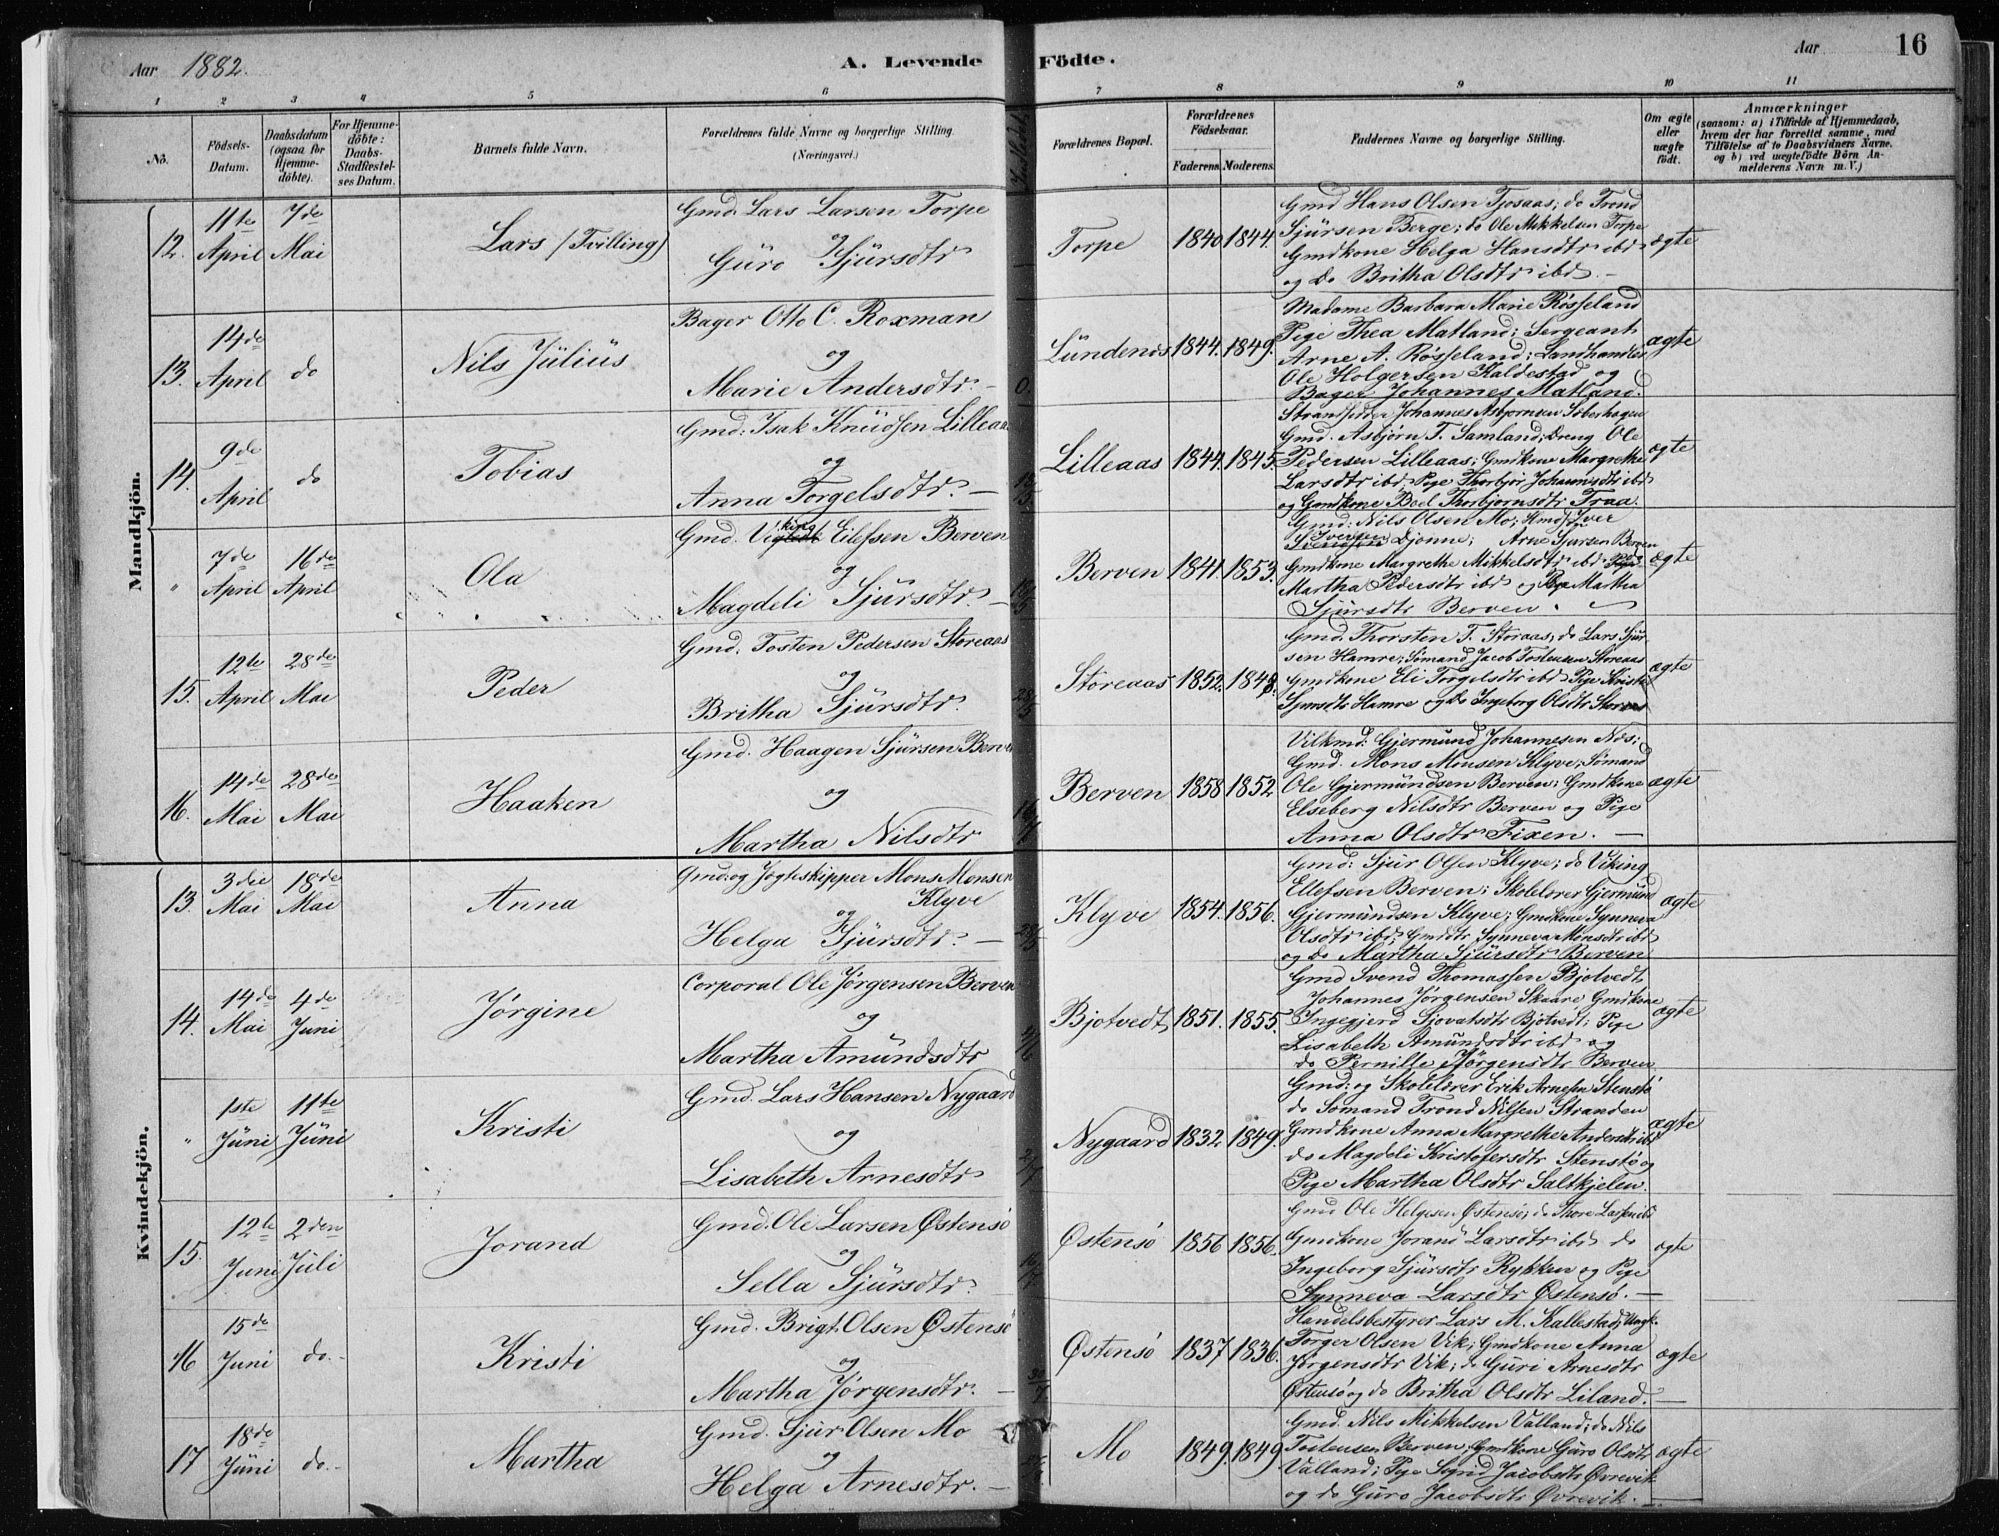 Aar 1882.
A. Levende Födte.
Aar
16
1 2 3 4 5 6 7 8 9 10 11
No.
Födsels-
Datum.
Daabsdatum
(ogsaa for
Hjemme-
döbte).
For Hjemme-
döbte:
Daabs-
Stadfæstel-
ses Datum.
Barnets fulde Navn.
Forældrenes fulde Navne og borgerlige Stilling.
(Næringsvei.)
Forældrenes Bopæl.
Forældrenes
Födselsaar.
Faderens. Moderens.
Faddernes Navne og borgerlige Stilling.
Om ægte
eller
uægte
født.
Anmærkninger
(saasom: a) i Tilfælde af Hjemmedaab,
hvem der har forrettet samme, med
Tilföielse af to Daabsvidners Navne.
og b) ved uægtefödte Börn An-
melderens Navn m.V.)
Mandkjön.
12. 11te April 7de Mai
Lars (Tvilling)
Gmd. Lars Larsen Torpe
og
Guro Sjursdtr
Torpe 1840 1844.
Gmd Hans Olsen Tjosaas; do Trond
Sjursen Berge; do Ole Mikkelsen Torpe
Gmdkone Helga Hansdtr ibd
og do Britha Olsdtr ibd. –
ægte
13. 14de April do
Nils Julius
Bager Otto C. Roxman
og
Marie Andersdtr. –
0.
Lundenes 1844. 1849.
Madame Barbara Marie Røsseland
Pige Thea Matland; Sergeant
Arne A. Røsseland; Landhandler
Ole Holgersen Kaldestad og
Bager Johannes Matland.
ægte
14. 9de April do
Tobias
Gmd: Isak Knudsen Lilleaas
og
Anna Torgelsdtr. –
Lilleaas 1844. 1845.
Strandsidder Johannes Asbjornsen
Gmd. Asbjørn T. Samland; Dreng Ole
Pedersen Lilleaas; Gmdkone Margrethe
Larsdtr ibd; Pige Thorbjør Johannsdtr ibd
og Gmdkone Boel Thorbjornsdtr Traa.
ægte
" 7de April 16de April
Ola
Gmd. Viking Eilefsen Berven
og
Magdeli Sjursdtr. –
Berven 1841. 1853.
Gmd: Nils Olsen Mo; Hmd Iver
Iversen Djonne; Arne Sjursen Berven
Gmdkone Margrethe Mikkelsdtr ibd; Pige
Martha Pedersdtr ibd og Pige Martha
Sjursdtr Berven.
ægte
15. 12te April 28de Mai
Peder
Gmd. Tosten Pedersen Storeaas
og
Britha Sjursdtr.
28/5
Storeaas 1852. 1848.
Gmd. Thorsten T. Storaas; do Lars Sjur-
sen Hamre; Sømand Jacob Tostensen Storeaas
Gmdkone Eli Torgelsdtr ibd Pige Kristi
Sjursdtr Hamre og do Ingeborg Olsdtr Storeaas
ægte
16. 14de Mai 28de Mai
Haaken
Gmd. Haagen Sjursen Berven
og
Martha Nilsdtr
Berven 1858 1852
Vilkmd: Gjermund Johannesen Nes;
Gmd. Mons Monsen Klyve; Sømand
Ole Gjermundsen Berven; Gmdkone
Elseberg Nilsdtr Berven og Pige
Anna Olsdtr Fixen. –
ægte
Kvindekjön.
13. 3die Mai 18de Mai
Anna
Gmd: og Jogteskipper Mons Monsen
Klyve
og
Helga Sjursdtr. –
Klyve 1854. 1856.
Gmd: Sjur Olsen Klyve; do Viking
Ellefsen Berven; Skolelærer Gjermund
Gjermundsen Klyve; Gmdkone Synneva
Olsdtr ibd; Gmddtr Synneva Monsdtr ibd
og do Martha Sjursdtr Berven
ægte
14. 14de Mai 4de Juni
Jørgine
Corporal Ole Jørgensen Berven
og
Martha Amundsdtr
4/6
Bjotvedt 1851. 1855.
Gmd Svend Thomassen Bjotvedt
Johannes Jørgensen Skaare Gmdkone
Ingegjerd Sjovatsdtr Bjotvedt; Pige
Lisabeth Amundsdtr ibd og
do Pernille Jørgensdtr Berven
ægte
" 1ste Juni 11te Juni
Kristi
Gmd. Lars Hansen Nygaard
og
Lisabeth Arnesdtr
2/7
Nygaard 1832. 1849.
Gmd: og Skolelærer Erik Arnesen Stenstø
do Sømand Trond Nilsen Stranden
Gmdkone Anna Margrethe Andersdtr ibd
do Magdeli Kristofersdtr Stenstø og
Pige Martha Olsdtr Saltkjelen.
ægte
15. 12te Juni 2den Juli
Jorand
Gmd. Ole Larsen Østensø
og
Sella Sjursdtr.
Østensø 1856 1856.
Gmd Ole Helgesen Østensø; do Thore Larsen ibd
Gmdkone Jorand Larsdtr ibd do
Ingeborg Sjursdtr Rykken og Pige
Synneva Larsdtr Østensø. –
ægte
16 15de Juni do. –
Kristi
Gmd. Brigt Olsen Østensø
og
Martha Jørgensdtr. –
30/7
Østensø 1837 1836.
Handelsbestyrer Lars M. Kallestad; Ungk.
Torger Olsen Vik; Gmdkone Anna
Jørgensdtr Vik; do Guri Arnesdtr
Østensø og do Britha Olsdtr Liland. –
ægte
17 18de Juni do. –
Martha
Gmd. Sjur Olsen Mo
og
Helga Arnesdtr. –
Mo 1849. 1849
Gmd. Nils Mikkelsen Valland; do Nils
Tostensen Berven; Gmdkone Guro Olsdtr
Valland; Pige Sigrid Jacobsdtr Øvrevik
og do Guro Jacobsdtr Øvrevik. –
ægte